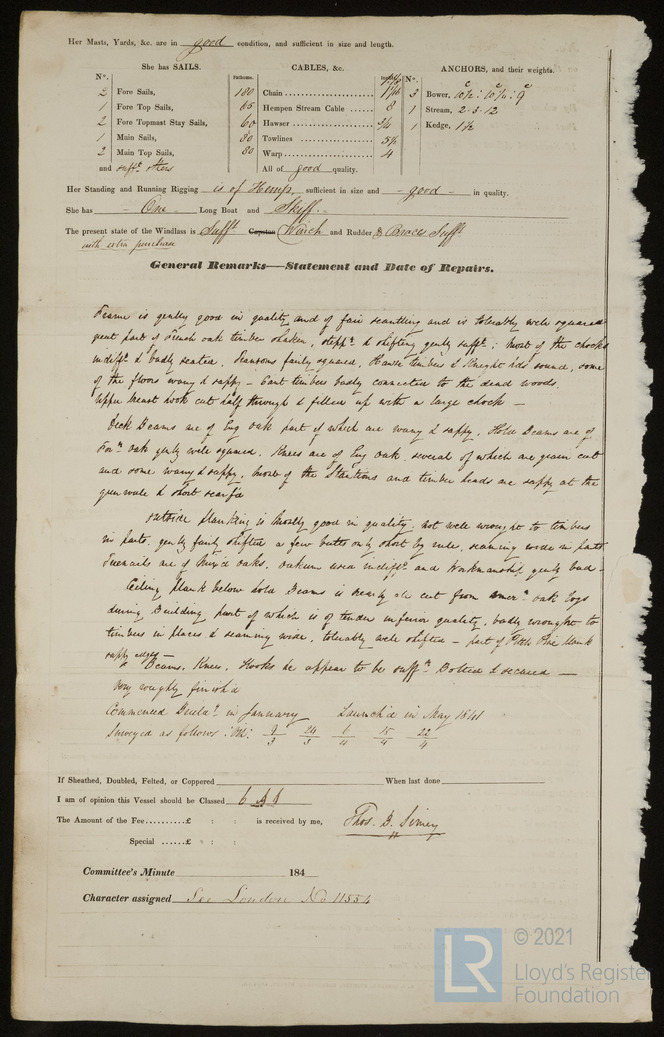 Her Masts, Yards, &c. are in good condition, and sufficient in size and length.
She has SAILS. CABLES, &c. ANCHORS, and their weights.
N°. Fathoms. N°.
2 Fore Sails, Chain 180 1 3 Bower,
1 Fore Top Sails, Hempen Stream Cable 65 8 1 Stream, 2-3-12
2 Fore Topmast Stay Sails, Hawser 60 1 Kedge, 1½
1 Main Sails, Towlines 80 5½
2 Main Top Sails, Warp 80 4
and sufft. others All of good quality.
Her Standing and Running Rigging is of Hemp, sufficient in size and - good - in quality.
She has - One - Long Boat and Skiff.
The present state of the Windlass is Sufft. Capstan Winch and Rudder & Braces Sufft.
with extra purchase
General Remarks—Statement and Date of Repairs.
Frame is gently good in quality and of fair scantling and is tolerably well squared
great part of French oak timber shaken, & shifting gently sufft. ; most of the chocks
indifft. & badly seated, Transoms fairly squared, Hawse timbers & Knight hds sound, some
of the floors wany & sappy - Cant timbers badly connected to the dead woods.
Upper breast hook cut half through & filled up with a large chock -
Deck Beams are of Eng oak part of which are wany & sappy, Hold Beams are of
Forn. oak gently well squared. Knees are of Eng oak several of which are grain cut
and some wany & sappy, most of the Stantions and timber heads are sappy at the
gunwale & short scarf'd
outside planking is mostly good in quality, not well wrought to timbers
in parts, gently fairly shifted a few butts only short by rule, seaming wide in parts
Treenails are of mix'd oaks, oakum used indifft. and Workmanship gently bad -
Ceiling plank below hold Beams is nearly all cut from Amern. oak logs
during Building part of which is of tender inferior quality, badly wrought to
timbers in places & seaming wide, tolerably well shifted - part of Pitch Pine plank
sappy edges -
Beams, Knees, Hooks &c appear to be suffn. Bolted & secured -
Very roughly finish'd
Commenced Buildg. in January Launch'd in May 1841
Surveyed as follows: 9/3 24/3 6/4 15/4 22/4
If Sheathed, Doubled, Felted, or Coppered When last done
I am of opinion this Vessel should be Classed 6 A 1
The Amount of the Fee.........£ : : is received by me, Thos. B. Simey
Special ......£ : :
Committee's Minute 184
Character assigned See London No 11554
LR © 2021
Lloyd's Register
Foundation